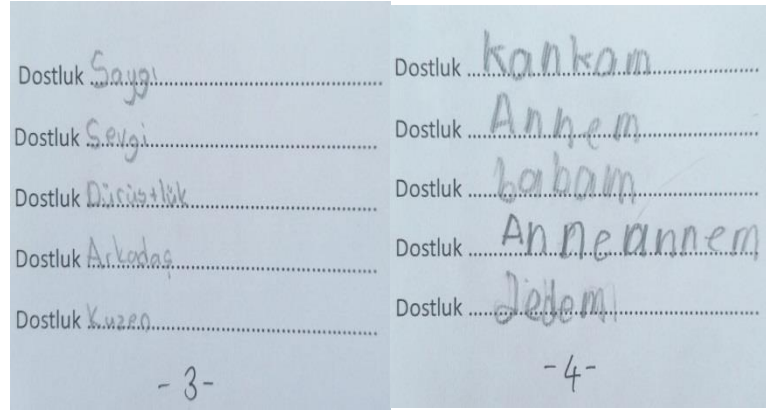 Dostluk Saygı
Dostluk Sevgi
Dostluk Dürüstlük
Dostluk Arkadaş
Dostluk Kuzen
-3-
Dostluk Kankam
Dostluk Annem
Dostluk babam
Dostluk Anneannem
Dostluk Dedem
-4-